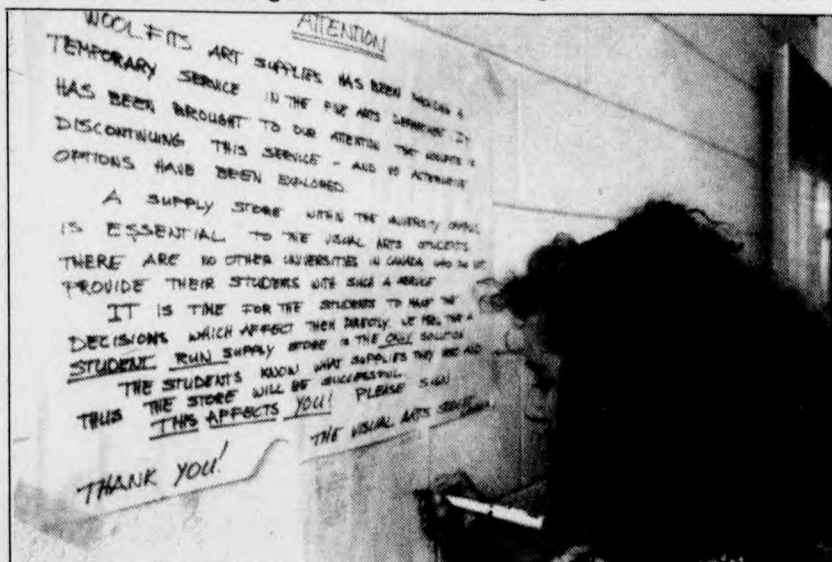 ATTENTION
WOOLFITS ART SUPPLIES HAS BEEN PROVIDING A
TEMPORARY SERVICE IN THE FINE ARTS DEPARTMENT. IT
HAS BEEN BROUGHT TO OUR ATTENTION THAT WOOLFITS IS
DISCONTINUING THIS SERVICE - AND NO ALTERNATIVE
OPTIONS HAVE BEEN EXPLORED.
A SUPPLY STORE WITHIN THE UNIVERSITY CAMPUS
IS ESSENTIAL TO THE VISUAL ARTS STUDENTS.
THERE ARE NO OTHER UNIVERSITIES IN CANADA WHO DO NOT
PROVIDE THEIR STUDENTS WITH SUCH A SERVICE
IT IS TIME FOR THE STUDENTS TO MAKE THE
DECISIONS WHICH AFFECT THEM DIRECTLY. WE FEEL THAT A
STUDENT RUN SUPPLY STORE IS THE ONLY SOLUTION
THE STUDENTS KNOW WHAT SUPPLIES THEY NEED AND
THUS THE STORE WILL BE SUCCESSFUL.
THIS AFFECTS YOU! PLEASE SIGN
THE VISUAL ARTS
THANK YOU!